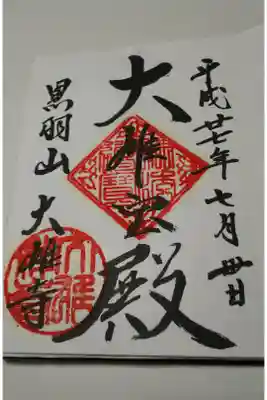 平成廿七年七月卅日
大雄宝殿
黒羽山
大雄寺